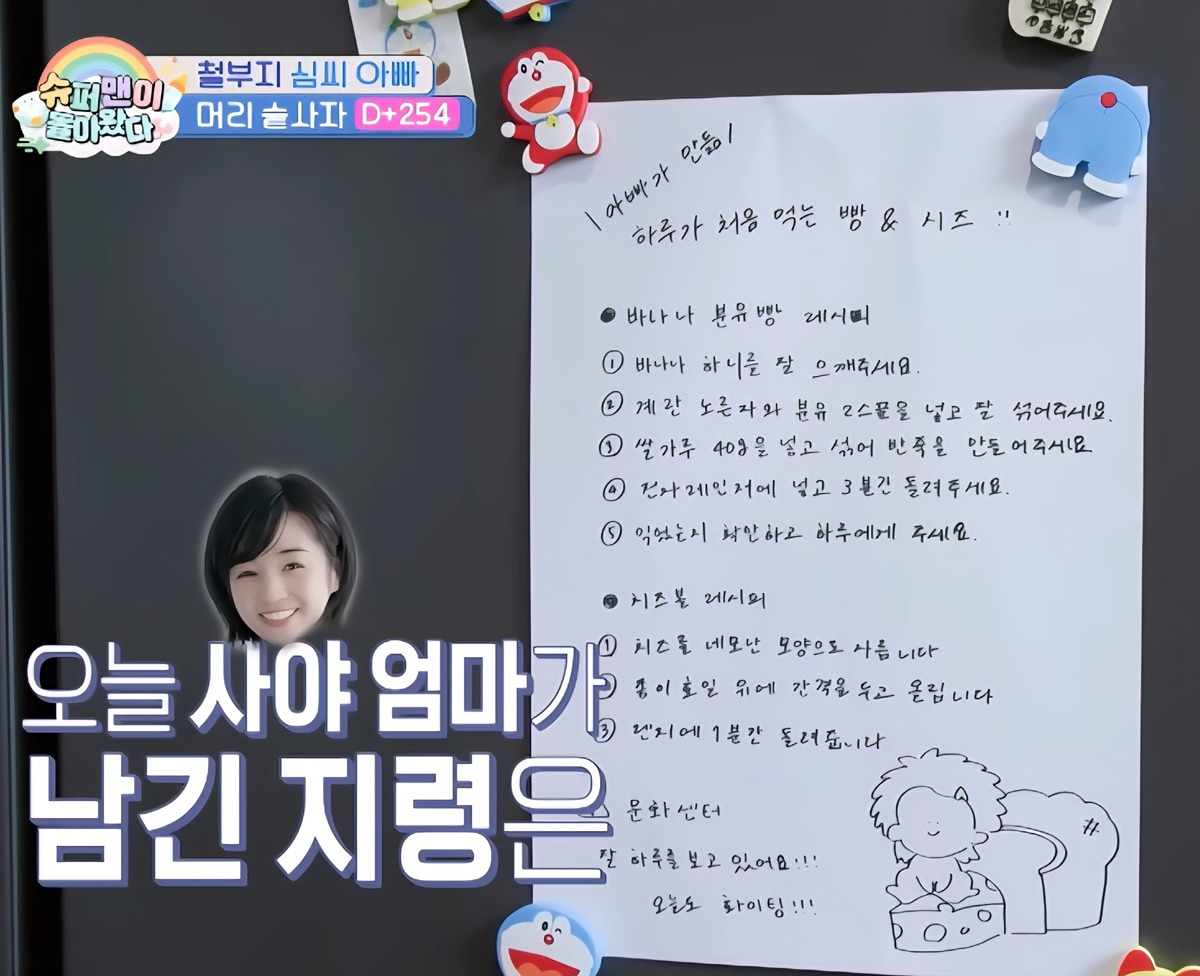 슈퍼맨이
돌아왔다
철부지 심씨 아빠
머리 숱사자 D+254
\ 아빠가 만듦 /
하루가 처음 먹는 빵 & 시즈 !!
● 바나나 분유빵 레시피
① 바나나 하나를 잘 으깨주세요.
② 계란 노른자와 분유 2스푼을 넣고 잘 섞어주세요.
③ 쌀가루 40g을 넣고 섞어 반죽을 만들어주세요
④ 전자레인저에 넣고 3분간 돌려주세요.
⑤ 익었는지 확인하고 하루에게 주세요.
● 치즈볼 레시피
① 치즈를 네모난 모양으로 자릅니다
종이호일 위에 간격을 두고 올립니다
③ 렌지에 1분간 돌려줍니다
문화센터
잘 하루를 보고 있어요!!!
오늘도 화이팅!!!
오늘 사야 엄마가
남긴 지령은